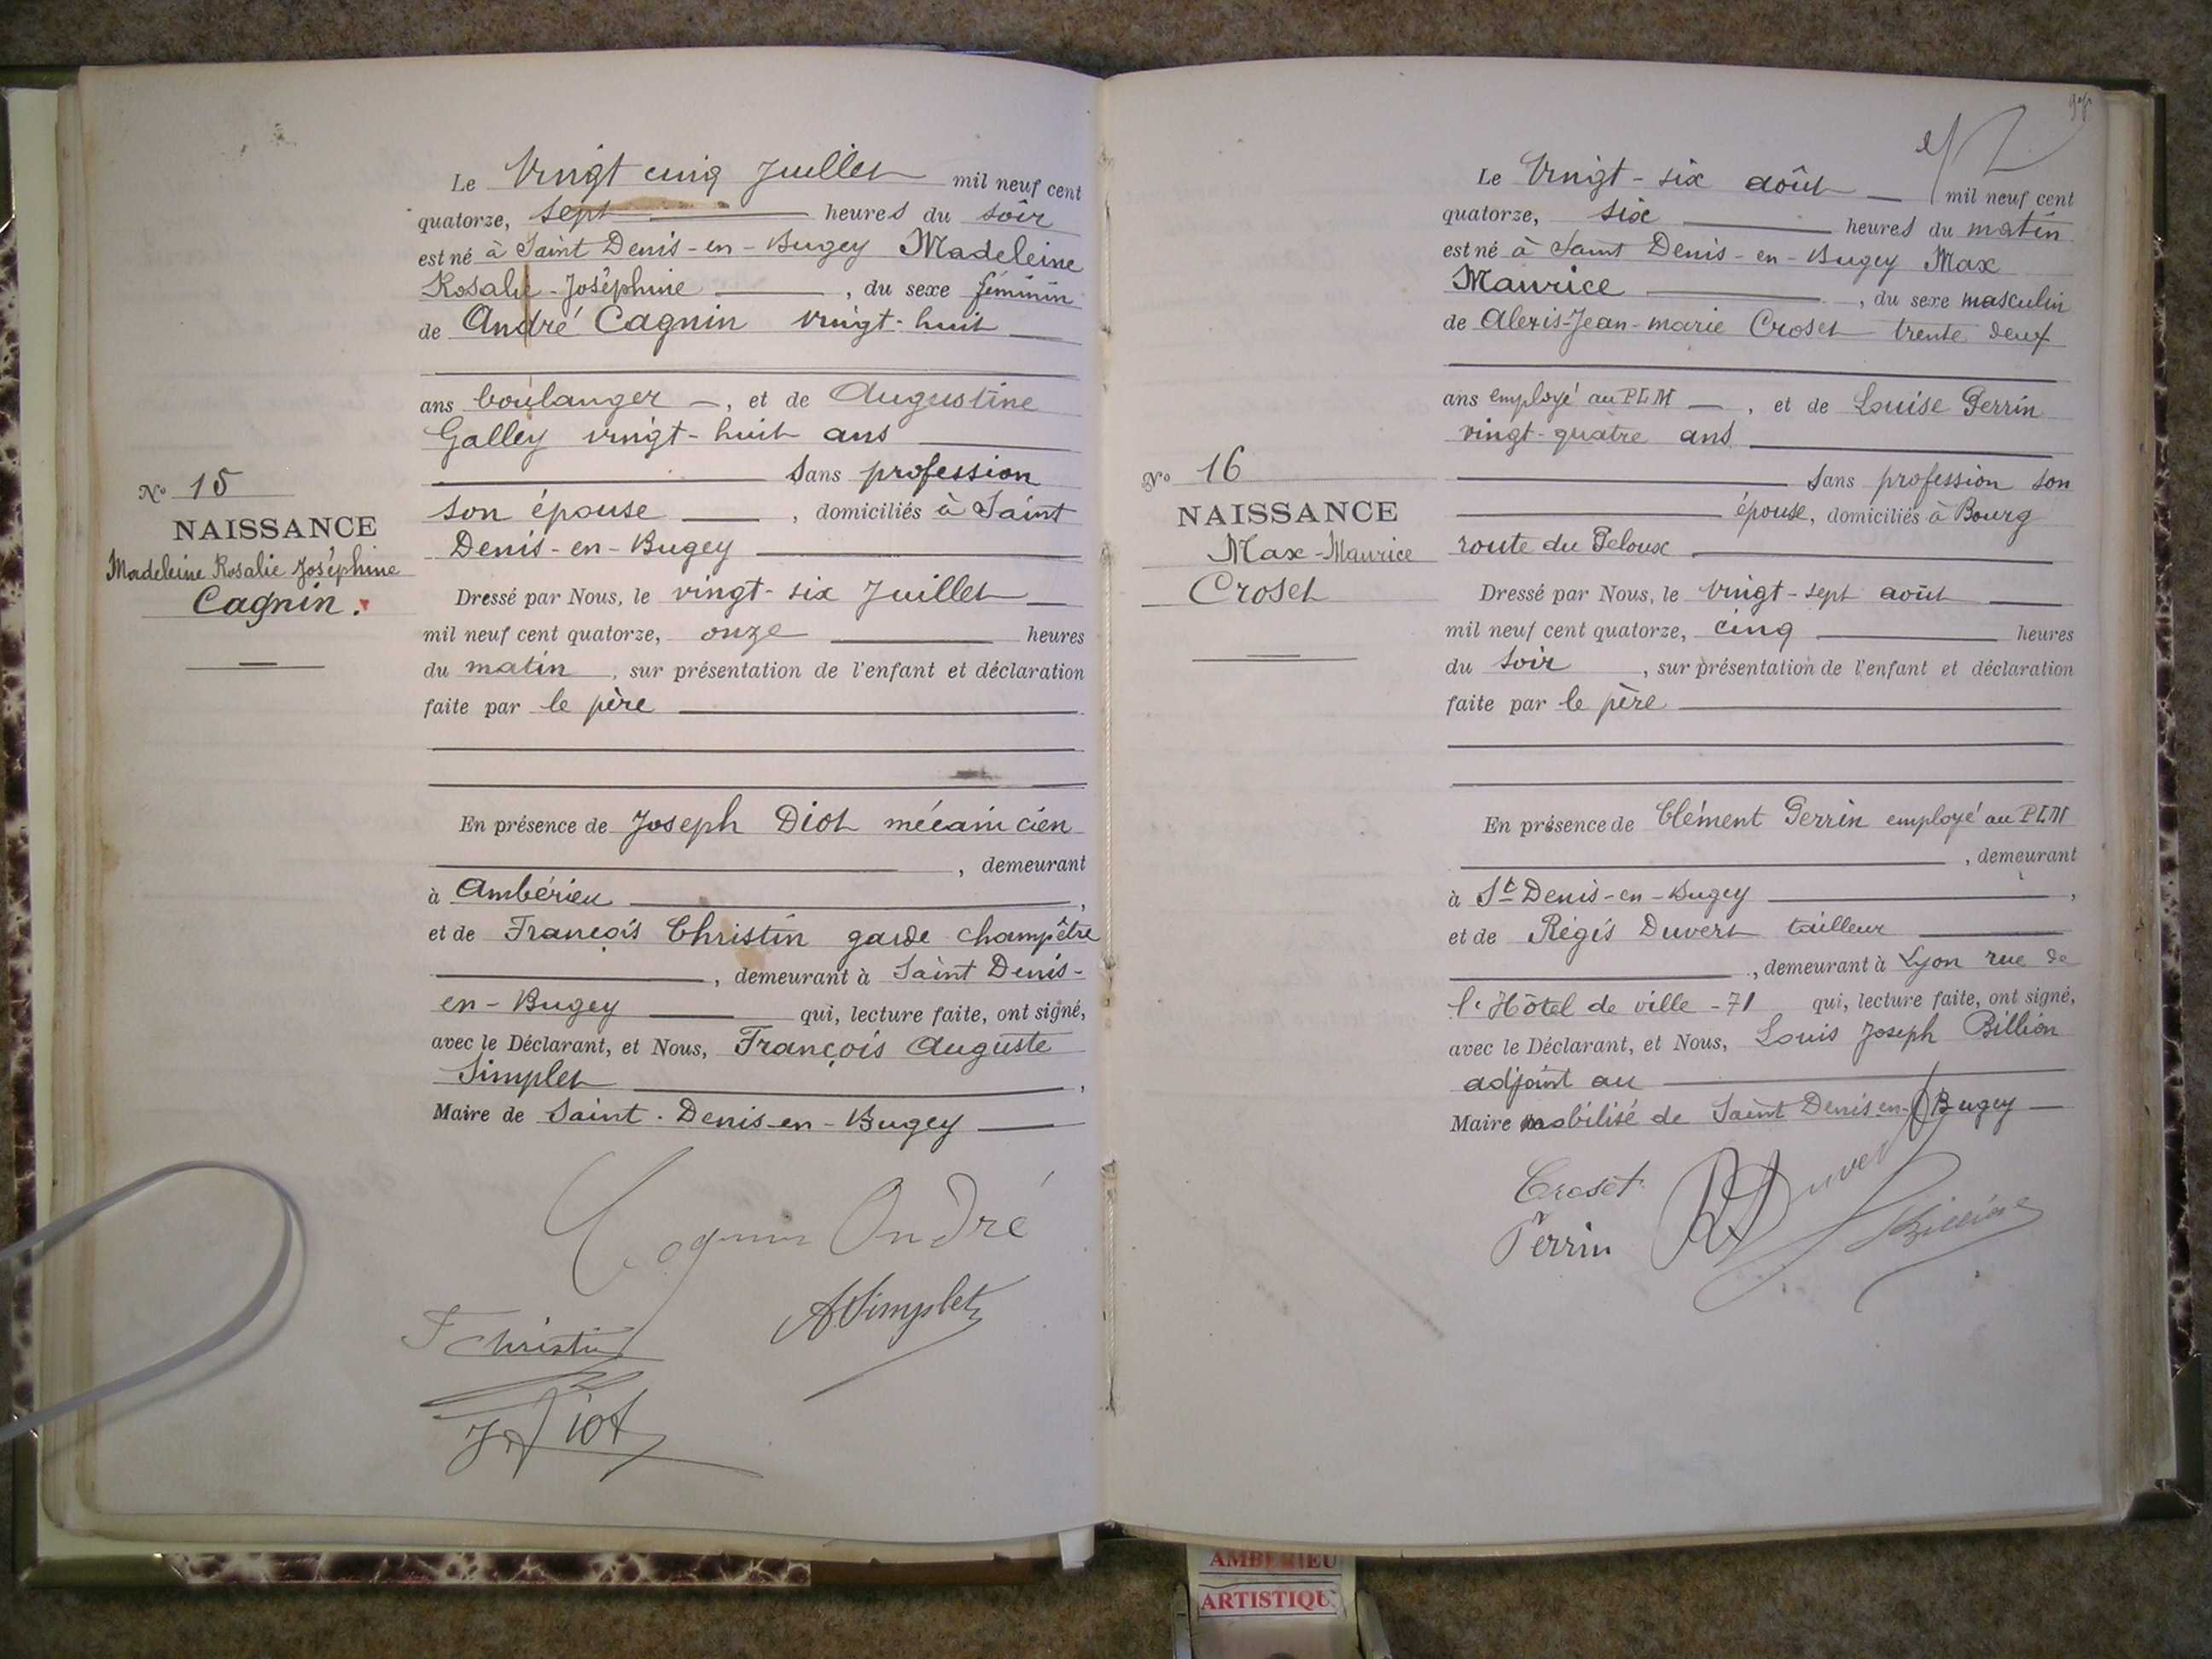 Le Vingt cinq Juillet mil neuf cent
quatorze, sept heures du soir
est né à Saint Denis-en-Bugey Madeleine
Rosalie-Joséphine, du sexe féminin
de André Cagnin vingt-huit
ans boulanger, et de Augustine
Galley vingt-huit ans
Sans profession
son épouse, domiciliés à Saint
Denis-en-Bugey
Nº 15
NAISSANCE
Madeleine Rosalie Joséphine
Cagnin.
Dressé par Nous, le vingt-six Juillet
mil neuf cent quatorze, onze heures
du matin, sur présentation de l'enfant et déclaration
faite par le père
En présence de Joseph Diot mécanicien
, demeurant
à Ambérieu,
et de François Christin garde champêtre
, demeurant à Saint Denis-
en-Bugey qui, lecture faite, ont signé,
avec le Déclarant, et Nous, François Auguste
Simplet,
Maire de Saint-Denis-en-Bugey
Cagnin André
F Christin
ASimplet
J Diot
Le Vingt-six août mil neuf cent
quatorze, six heures du matin
est né à Saint Denis-en-Bugey Max
Maurice, du sexe masculin
de Alexis-Jean-marie Croset trente deux
ans employé au PLM, et de Louise Perrin
vingt-quatre ans
Sans profession son
épouse, domiciliés à Bourg
route du Peloux
Nº 16
NAISSANCE
Max-Maurice
Croset
Dressé par Nous, le vingt-sept août
mil neuf cent quatorze, cinq heures
du soir, sur présentation de l'enfant et déclaration
faite par le père
En présence de Clément Perrin employé au PLM
, demeurant
à St Denis-en-Bugey,
et de Régis Duvert tailleur
, demeurant à Lyon rue de
l'Hôtel de ville-71 qui, lecture faite, ont signé,
avec le Déclarant, et Nous, Louis Joseph Billion
adjoint au
Maire mobilisé de Saint Denis en-Bugey
Croset
Perrin
R Duvert
Billion
AMBERIEU
ARTISTIQU